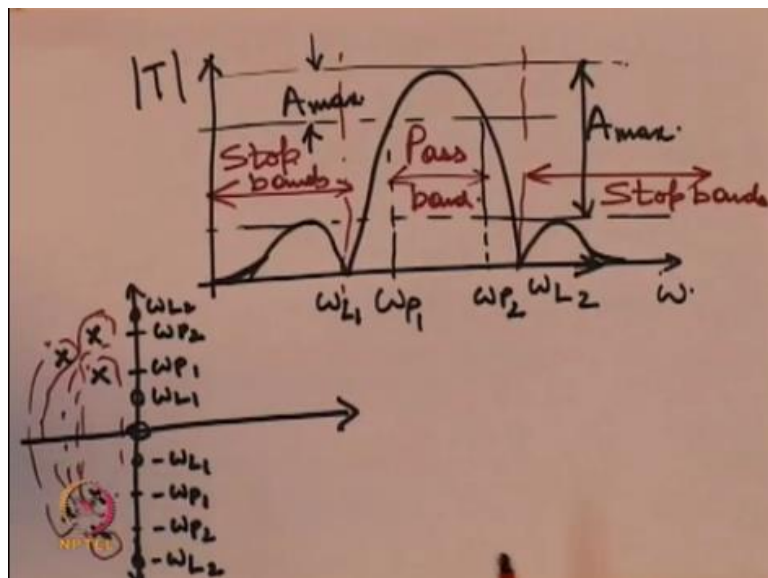 |T|
Amax
Amax.
Stop bands
Pass band.
Stop bands
ωL1 ωP1 ωP2 ωL2 ω.
ωL2
ωP2
ωP1
ωL1
-ωL1
-ωP1
-ωP2
-ωL2
x
x
x
x
NPTEL